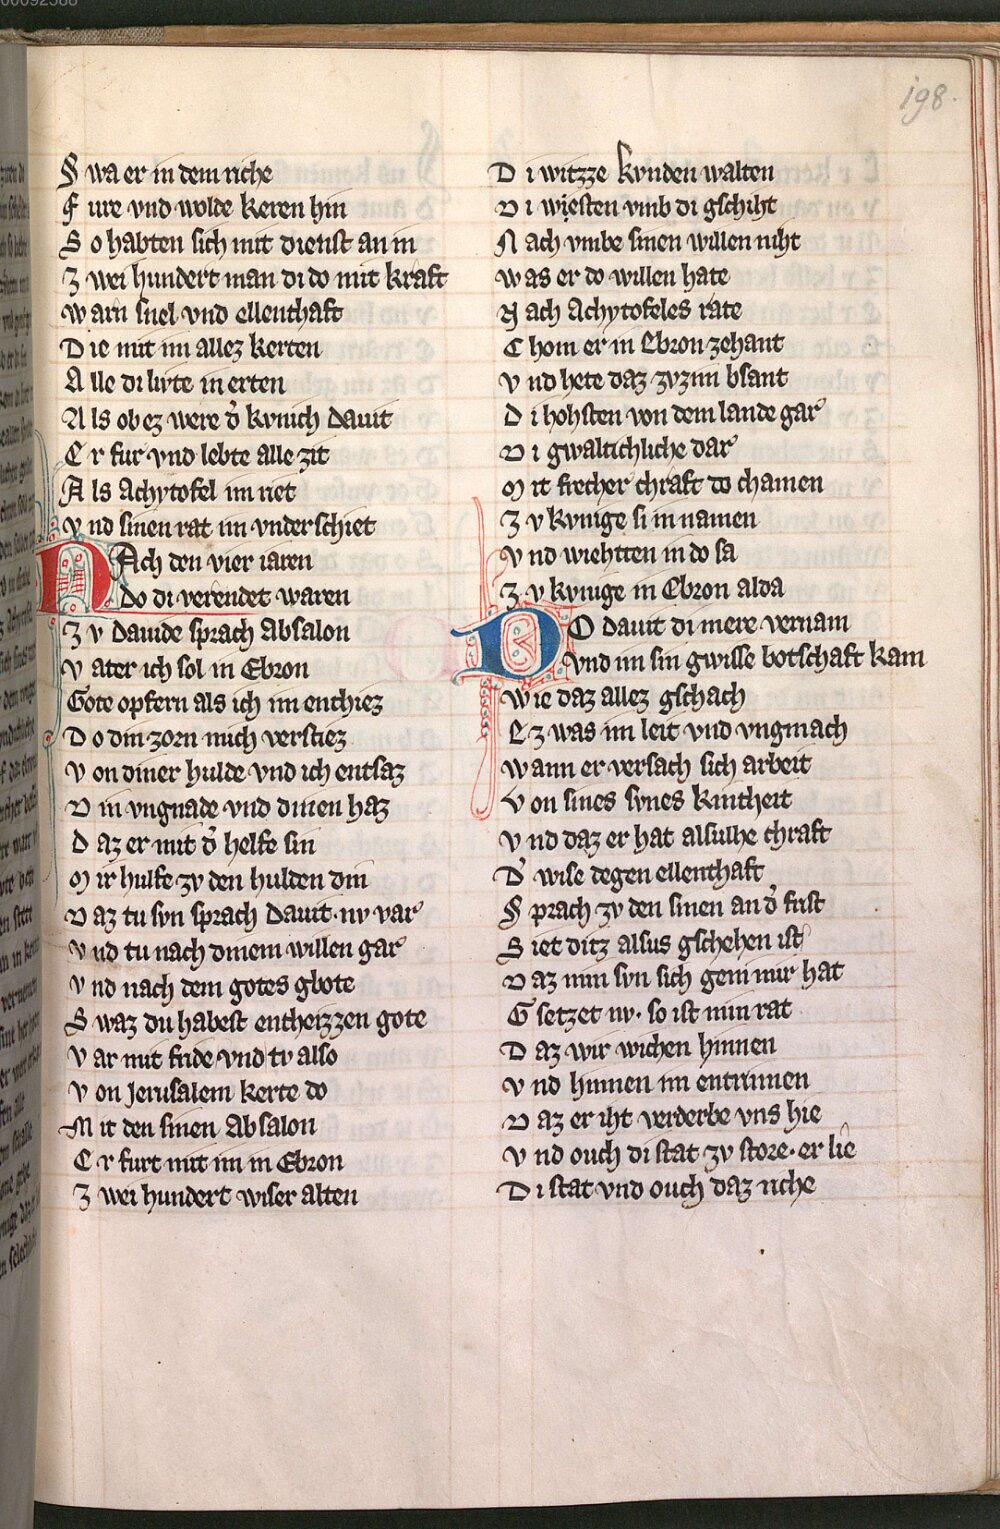 198.
S wa er in dem riche
F ure vnd wolde keren hin
S o habten sich mit dienst an in
Z wei hundert man di do mit kraft
w arn snel vnd ellenthaft
D ie mit im allez kerten
A lle di livte in erten
A ls ob ez were d̉ kvnich dauit
E r fur vnd lebte alle zit
A ls Achytofel im riet
v nd sinen rat im vnder schiet
NAch den vier iaren
do di verendet waren
Z v dauide sprach Absalon
v ater ich sol in Ebron
Gote opfern als ich im enthiez
D o din zorn mich verstiez
v on diner hulde vnd ich entsaz
D in vngnade vnd dinen haz
D az er mit d̉ helfe sin
M ir hulfe zv den hulden din
D az tu svn sprach dauit· nv var
v nd tu nach dinem willen gar
v nd nach dem gotes gbote
S waz du habest entheizzen gote
v ar mit fride vnd tv also
v on Jerusalem kerte do
M it den sinen Absalon
E r furt mit im in Ebron
Z wei hundert wiser alten
D i witzze kvnden walten
D i wiesten vmb di gschiht
N ach vmbe sinen willen niht
w as er do willen hate
N ach Achytofeles rate
C hom er in Ebron zehant
v nd hete daz zvzim bsant
D i hohsten von dem lande gar
D i gwaltichliche dar
M it frecher chraft do chamen
Z v kvnige si in namen
v nd wiehtten in do sa
Z v kvnige in Ebron alda
DO dauit di mere vernam
vnd im sin gwisse botschaft kam
w ie daz allez gschach
E z was im leit vnd vngmach
w ann er versach sich arbeit
v on sines svnes kintheit
v nd daz er hat alsulhe chraft
D̉ wise degen ellenthaft
S prach zv den sinen an d̉ frist
S iet ditz alsus gschehen ist
D az min svn sich gein mir hat
G setzet nv· so ist min rat
D az wir wichen hinnen
v nd hinnen im entrinnen
D az er iht verderbe vns hie
v nd ouch di stat zv store· er lie
D i stat vnd ouch daz riche